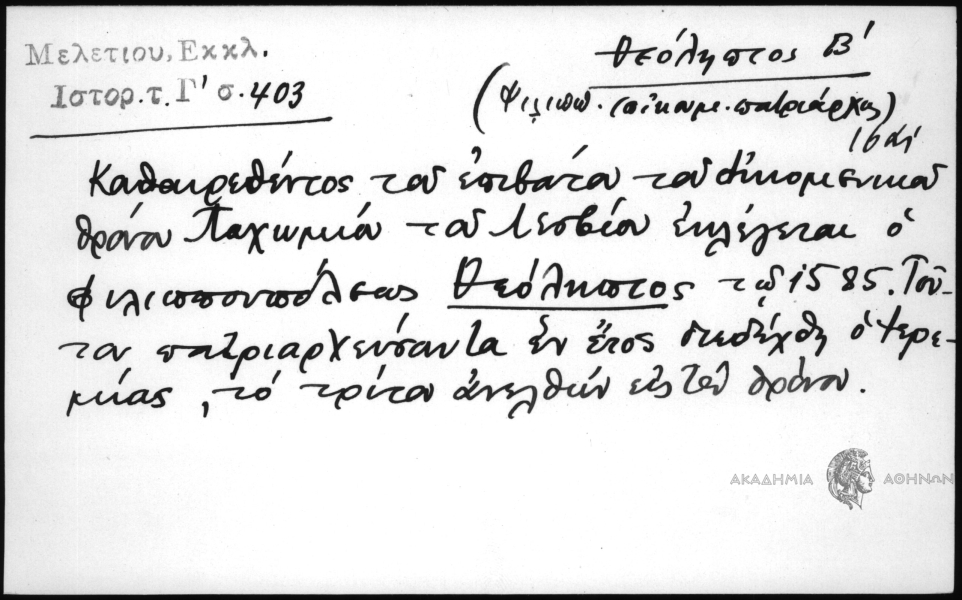 Μελετιου, Εκκλ.
Ιστορ. τ. Γ' σ. 403
Θεόληπτος Β'
(Φιλιππ. οἰκουμ. πατριάρχης)
16 αἰ
Καθαιρεθέντος τοῦ ἐπιβάτου τοῦ οἰκουμενικοῦ
θρόνου Παχωμίου τοῦ Λεσβίου ἐκλέγεται ὁ
Φιλιππουπόλεως Θεόληπτος τῷ 1585. Τοῦ-
τον πατριαρχεύσαντα ἓν ἔτος διεδέχθη ὁ Ἱερε-
μίας, τό τρίτον ἀνελθών εἰς τόν θρόνον.
ΑΚΑΔΗΜΙΑ ΑΘΗΝΩΝ